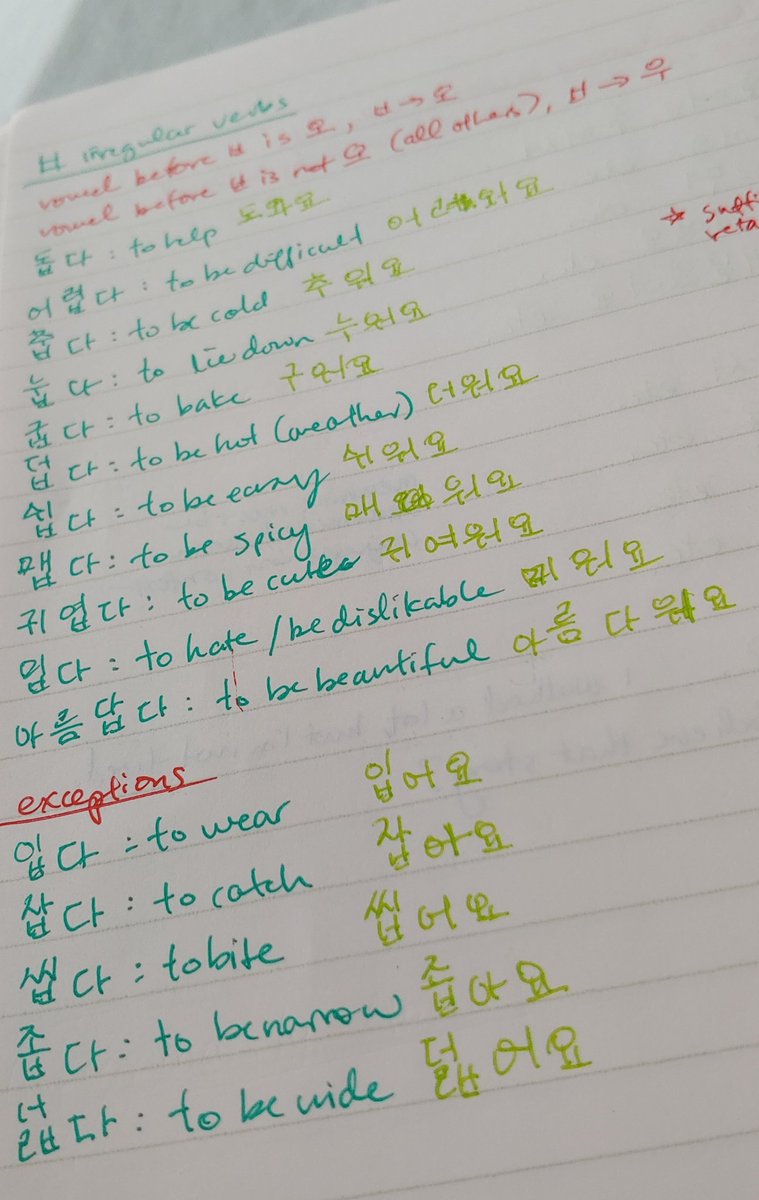 ㅂ irregular verbs
vowel before ㅂ is 오, ㅂ → 오
vowel before ㅂ is not 오 (all others), ㅂ → 우
돕다 : to help 도와요
어렵다 : to be difficult 어려워요
* suffi
reta
춥다 : to be cold 추워요
눕다 : to lie down 누워요
굽다 : to bake 구워요
덥다 : to be hot (weather) 더워요
쉽다 : to be easy 쉬워요
맵다 : to be spicy 매워요
귀엽다 : to be cute 귀여워요
밉다 : to hate / be dislikable 미워요
아름답다 : to be beautiful 아름다워요
exceptions
입다 : to wear 입어요
잡다 : to catch 잡아요
씹다 : to bite 씹어요
좁다 : to be narrow 좁아요
넓다 : to be wide 넓어요